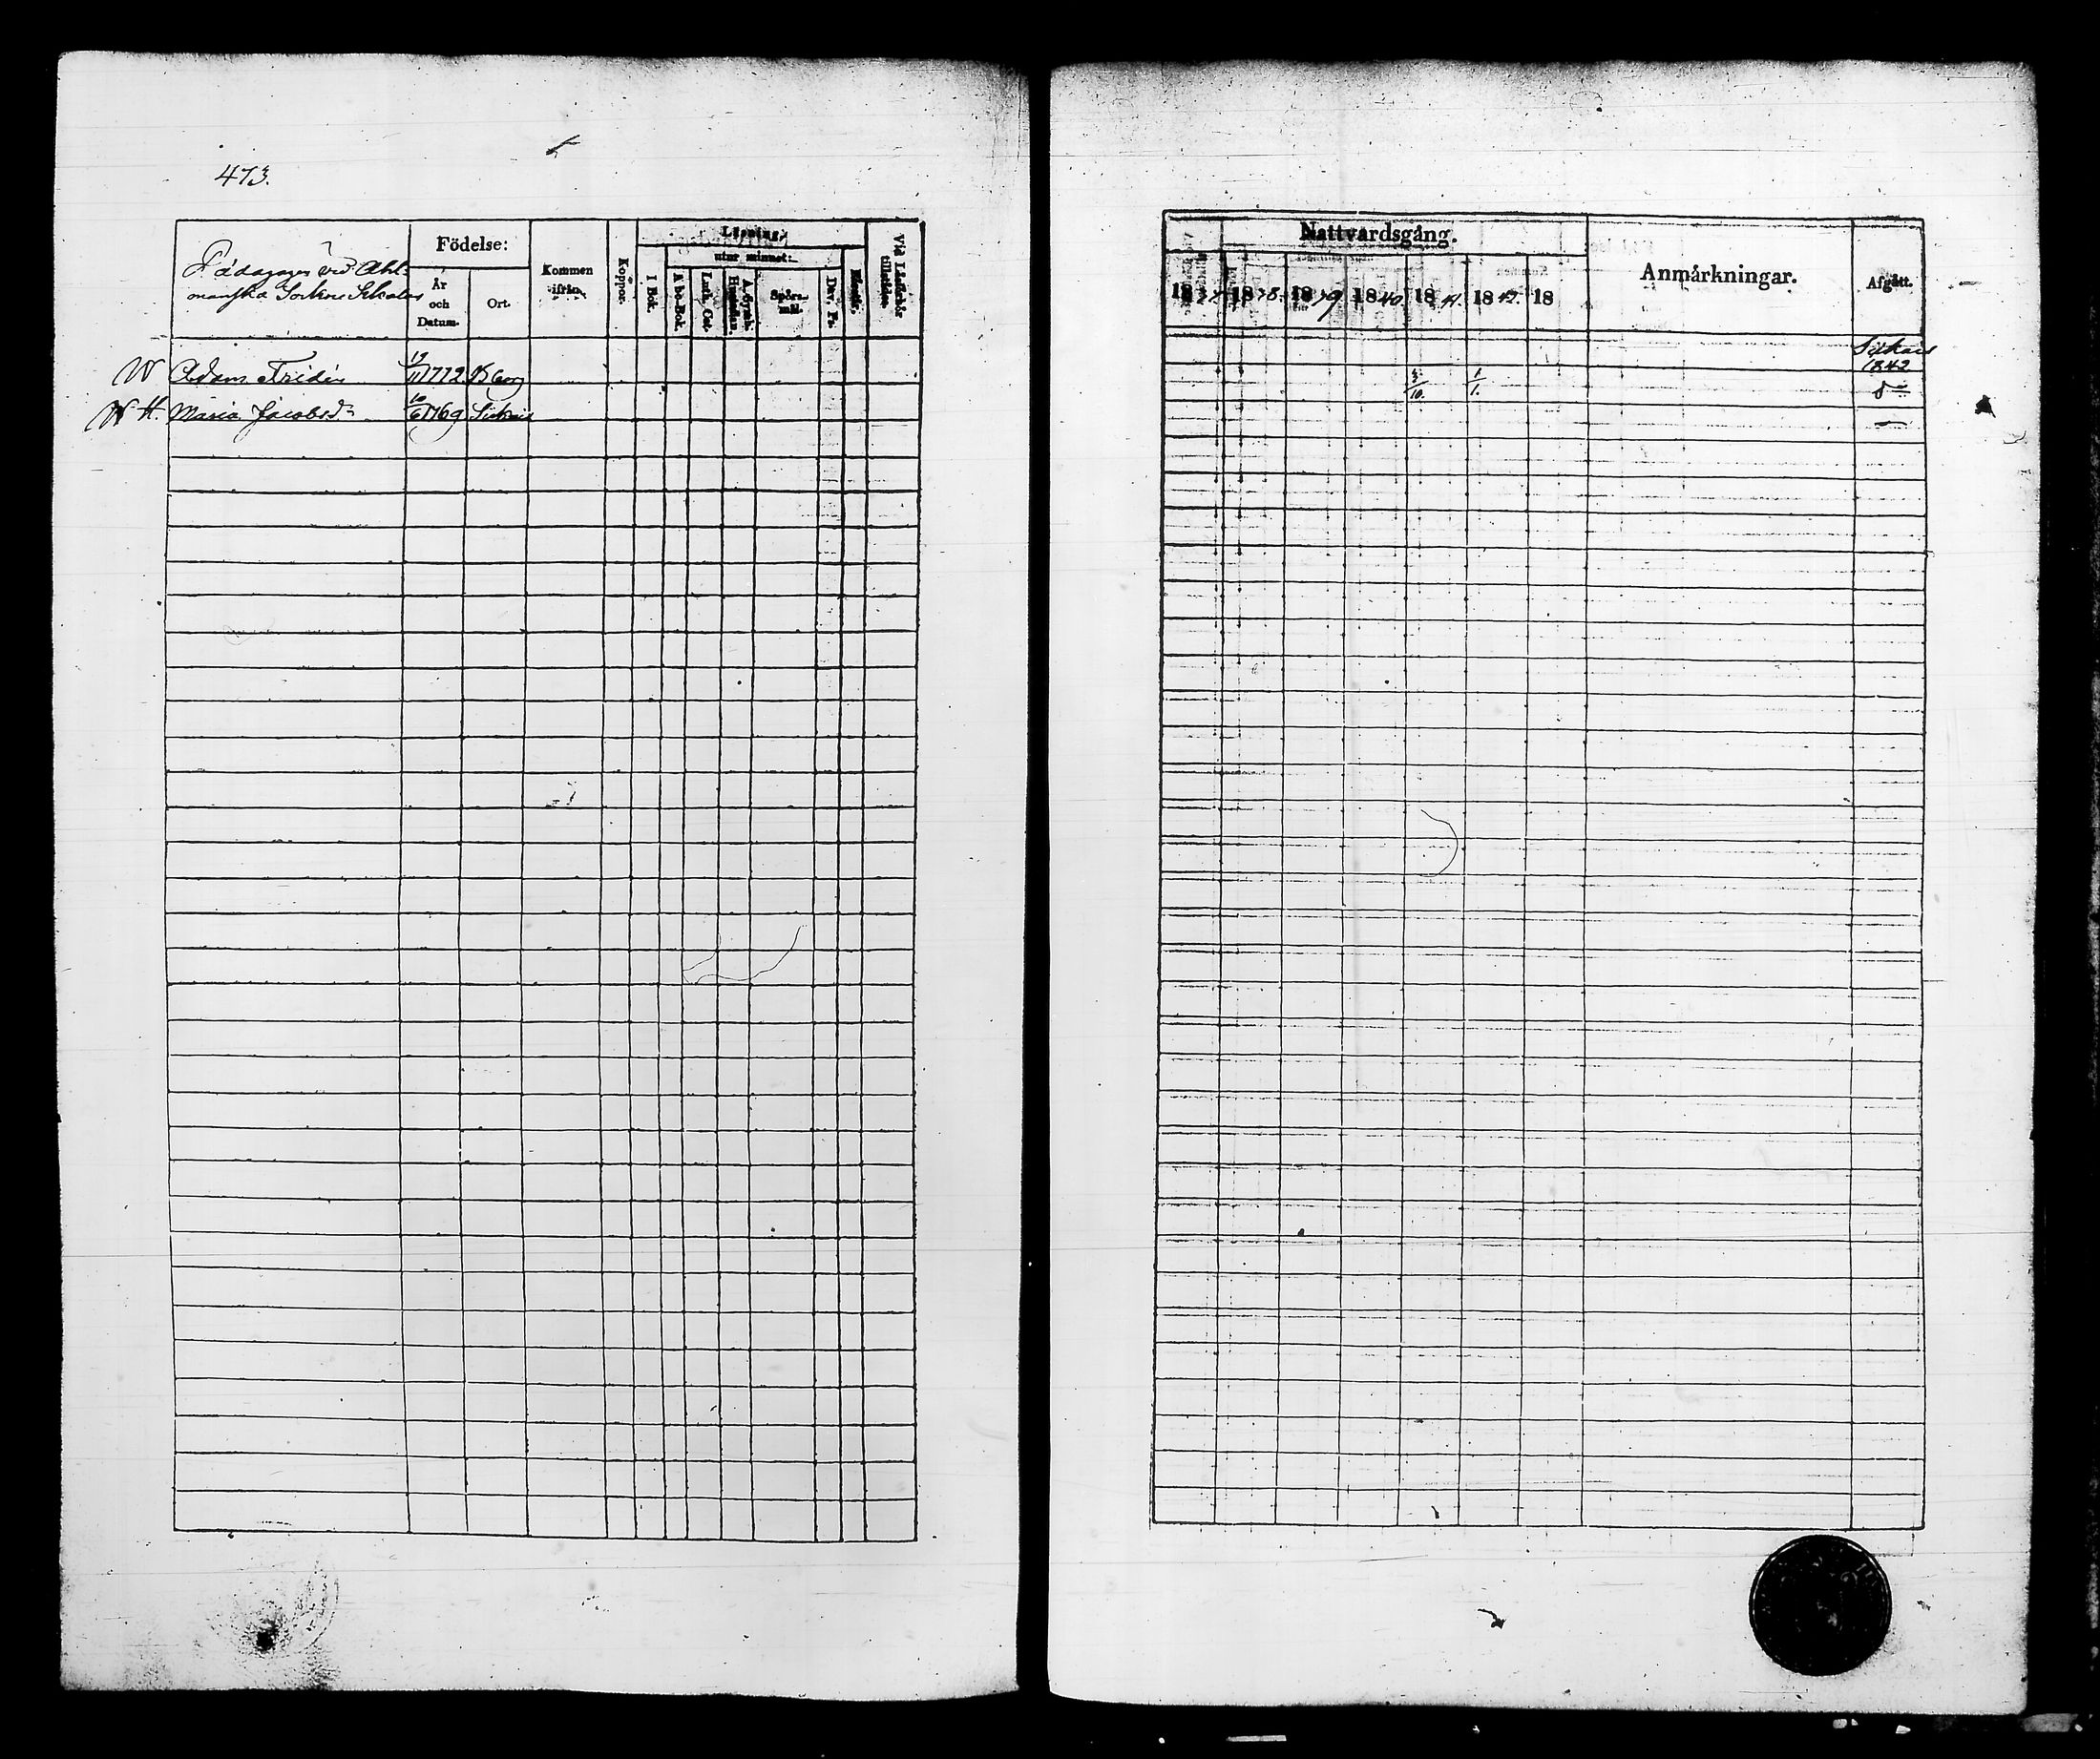 473.
Pädagoger vid Ahl-
manska Sockne Scholan
Födelse:
År och Datum.
Ort.
Kommen ifrån.
Koppor.
Läsning.
utur minnet:
I Bok.
A be-Bok.
Luth. Cat.
A. Symb. Hustaflan.
Spörs-mål.
Dav. Ps.
Vid Läsförhör tillstädes.
W Adam Fridén 19/11 1772 Kborg
W H. Maria Jacobsd:r 10/6 1769 Sickais
Nattvardsgång.
18 37 18 38. 18 39 18 40. 18 41. 18 42. 18
Anmärkningar.
Afgått.
Sickais
1842
3/10. 1/1.